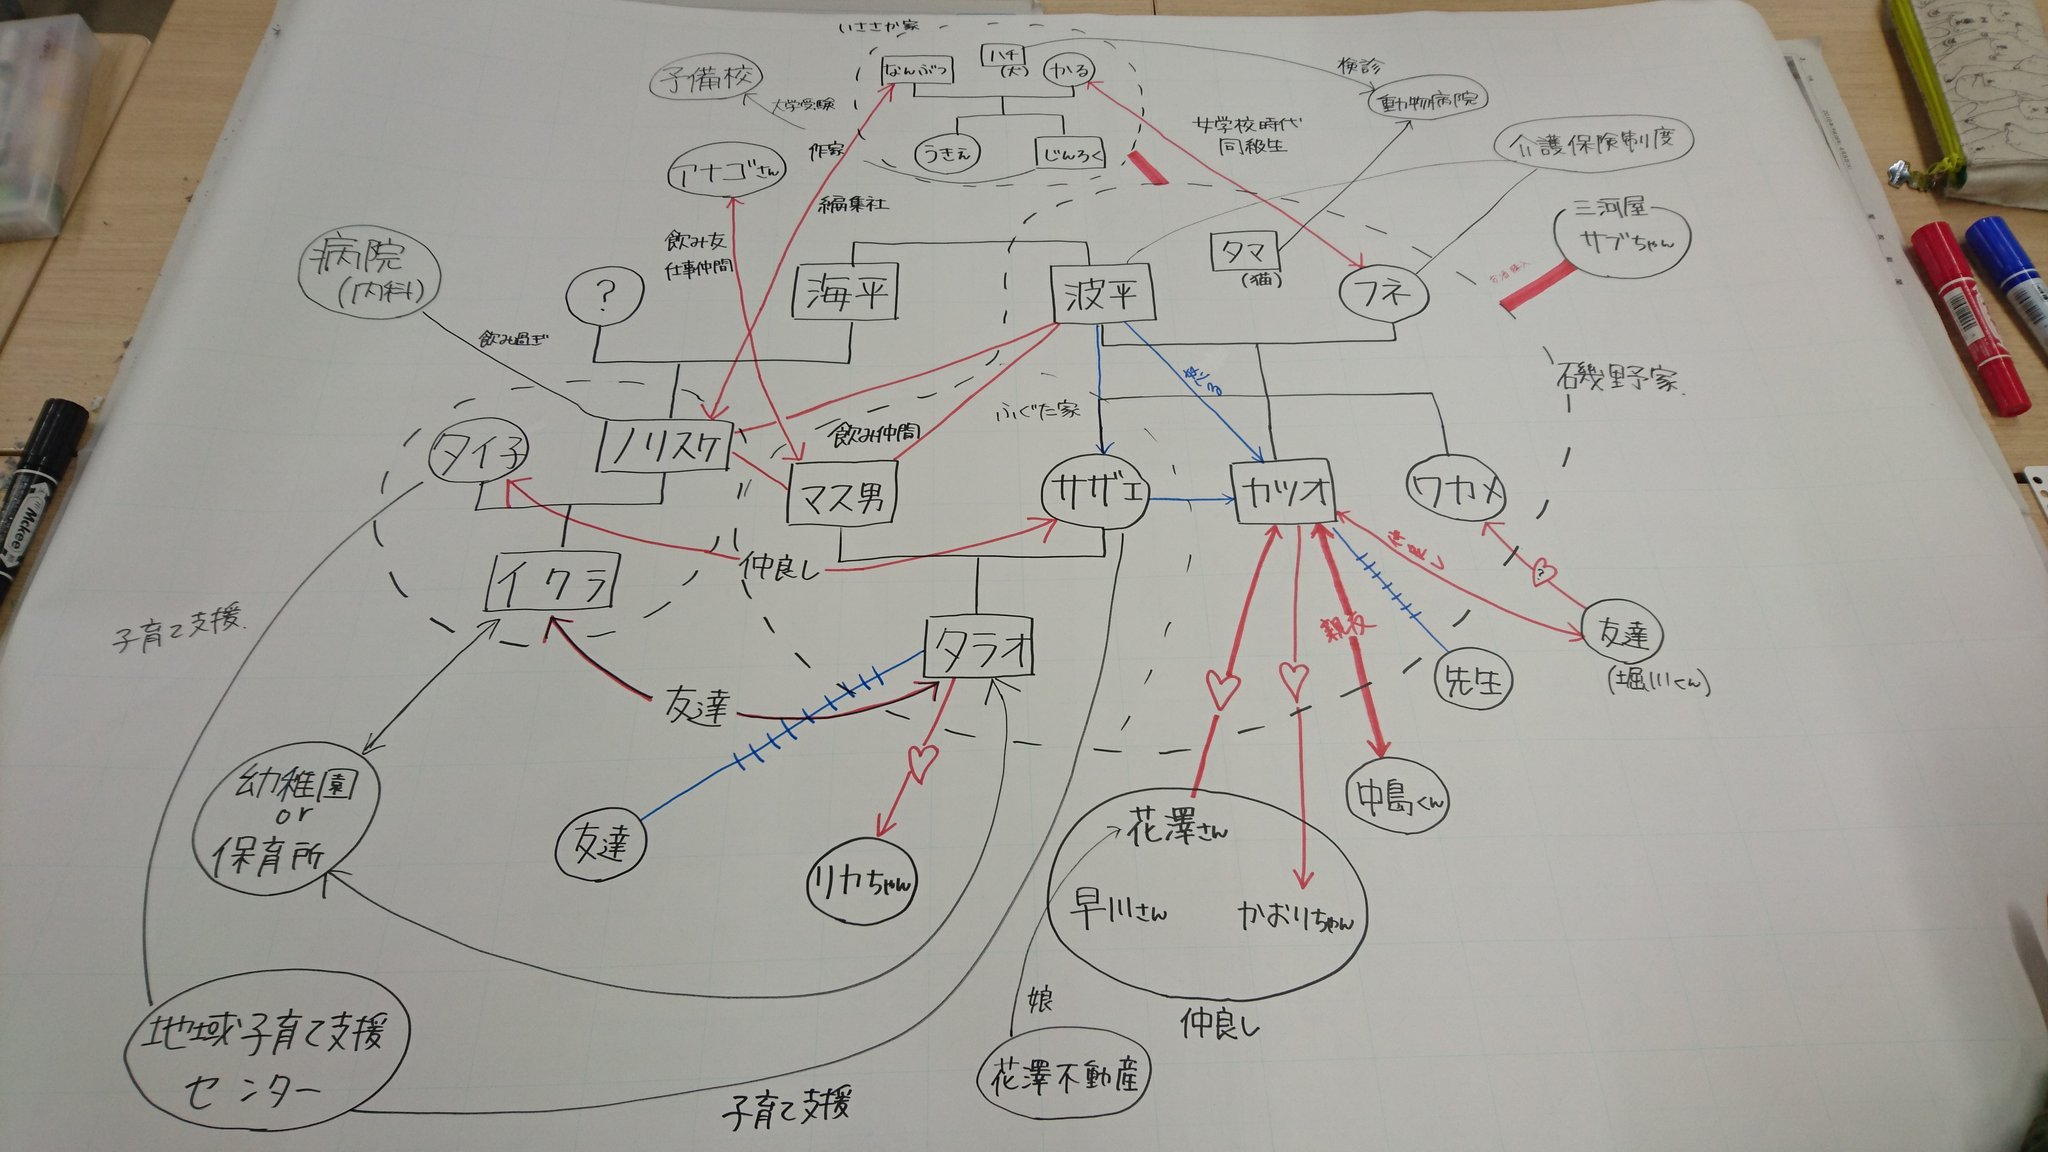 いささか家
なんぶつ
ハチ
(犬)
かる
検診
動物病院
予備校
大学受験
作家
うきえ
じんろく
女学校時代
同級生
介護保険制度
アナゴさん
編集社
飲み友
仕事仲間
三河屋
サブちゃん
病院
(内科)
飲み過ぎ
?
海平
波平
タマ
(猫)
フネ
磯野家
ふぐた家
飲み仲間
タイ子
ノリスケ
マス男
サザエ
カツオ
ワカメ
仲良し
イクラ
タラオ
子育て支援
友達
親友
?
先生
友達
(堀川くん)
幼稚園
or
保育所
友達
リカちゃん
中島くん
花澤さん
早川さん
かおりちゃん
仲良し
娘
花澤不動産
地域子育て支援
センター
子育て支援
Mckee